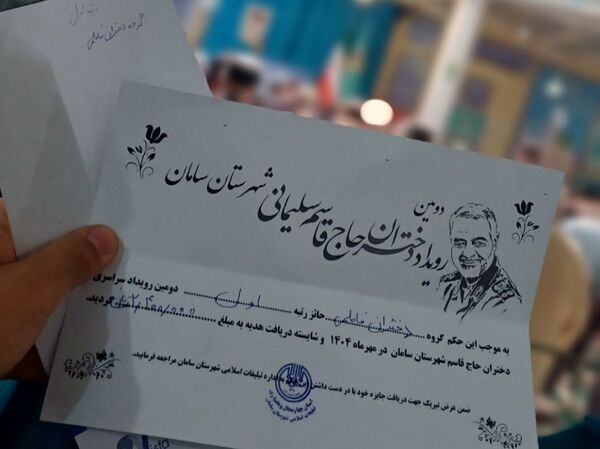 رتبه اول
گروه دختران فاطمی
دومین
رویداد دختران حاج قاسم سلیمانی شهرستان سامان
به موجب این حکم گروه ..... دختران فاطمی ..... حائز رتبه ..... اول ..... دومین رویداد سراسری
دختران حاج قاسم شهرستان سامان در مهرماه ۱۴۰۴ و شایسته دریافت هدیه به مبلغ ..... گردید.
ضمن عرض تبریک جهت دریافت جایزه خود با در دست داشتن اداره تبلیغات اسلامی شهرستان سامان مراجعه فرمایید.
استان چهارمحال و بختیاری
تبلیغات اسلامی شهرستان سامان